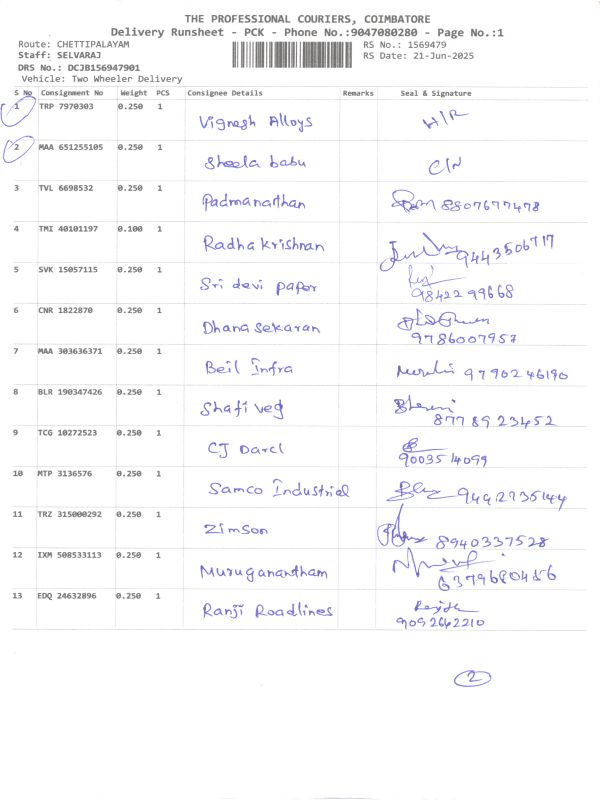 THE PROFESSIONAL COURIERS, COIMBATORE
Delivery Runsheet - PCK - Phone No.:9047080280 - Page No.:1
Route: CHETTIPALAYAM RS No.: 1569479
Staff: SELVARAJ RS Date: 21-Jun-2025
DRS No.: DCJB156947901
Vehicle: Two Wheeler Delivery
S No Consignment No Weight PCS Consignee Details Remarks Seal & Signature
1 TRP 7970303 0.250 1 Vignesh Alloys H/R
2 MAA 651255105 0.250 1 Sheela babu C/N
3 TVL 6698532 0.250 1 Padmanathan 8807677478
4 TMI 40101197 0.100 1 Radha krishnan 9443506717
5 SVK 15057115 0.250 1 Sri devi paper
9842299668
6 CNR 1822870 0.250 1 Dhana sekaran
9786007957
7 MAA 303636371 0.250 1 Beil Infra 9790246190
8 BLR 190347426 0.250 1 Shafi veg
8778923452
9 TCG 10272523 0.250 1 CJ Darcl
9003514099
10 MTP 3136576 0.250 1 Samco Industrial
11 TRZ 315000292 0.250 1 Zimson 8940337528
12 IXM 508533113 0.250 1 Muruganantham
6379680456
13 EDQ 24632896 0.250 1 Ranji Roadlines
9092642210
2